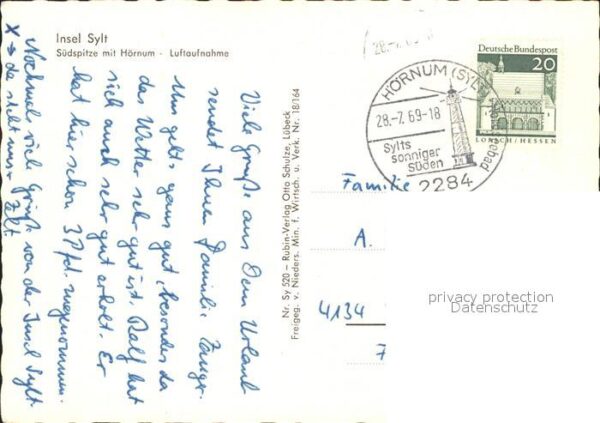 Insel Sylt
Südspitze mit Hörnum - Luftaufnahme
Viele Grüße aus dem Urlaub
sendet Ihnen Familie
Uns geht's ganz gut, besonders da
das Wetter sehr gut ist. Ralf hat
sich auch sehr gut erholt. Er
hat hier schon 3 Pfd. zugenommen.
Nochmal viele Grüße von der Insel Sylt.
X → da steht unser Zelt.
Nr. Sy 520 – Rubin-Verlag Otto Schulze, Lübeck
Freigeg. v. Nieders. Min. f. Wirtsch. u. Verk. Nr. 18/164
HÖRNUM (SYLT)
28.-7.69-18
Sylts
sonniger
Süden
2284
Deutsche Bundespost
20
LORSCH / HESSEN
Familie
A.
4134
privacy protection
Datenschutz